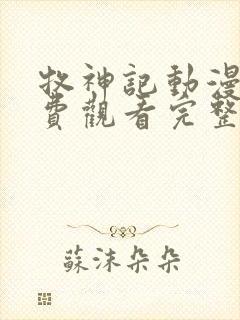 牧神記動漫
費觀看完整
蘇沫朵朵